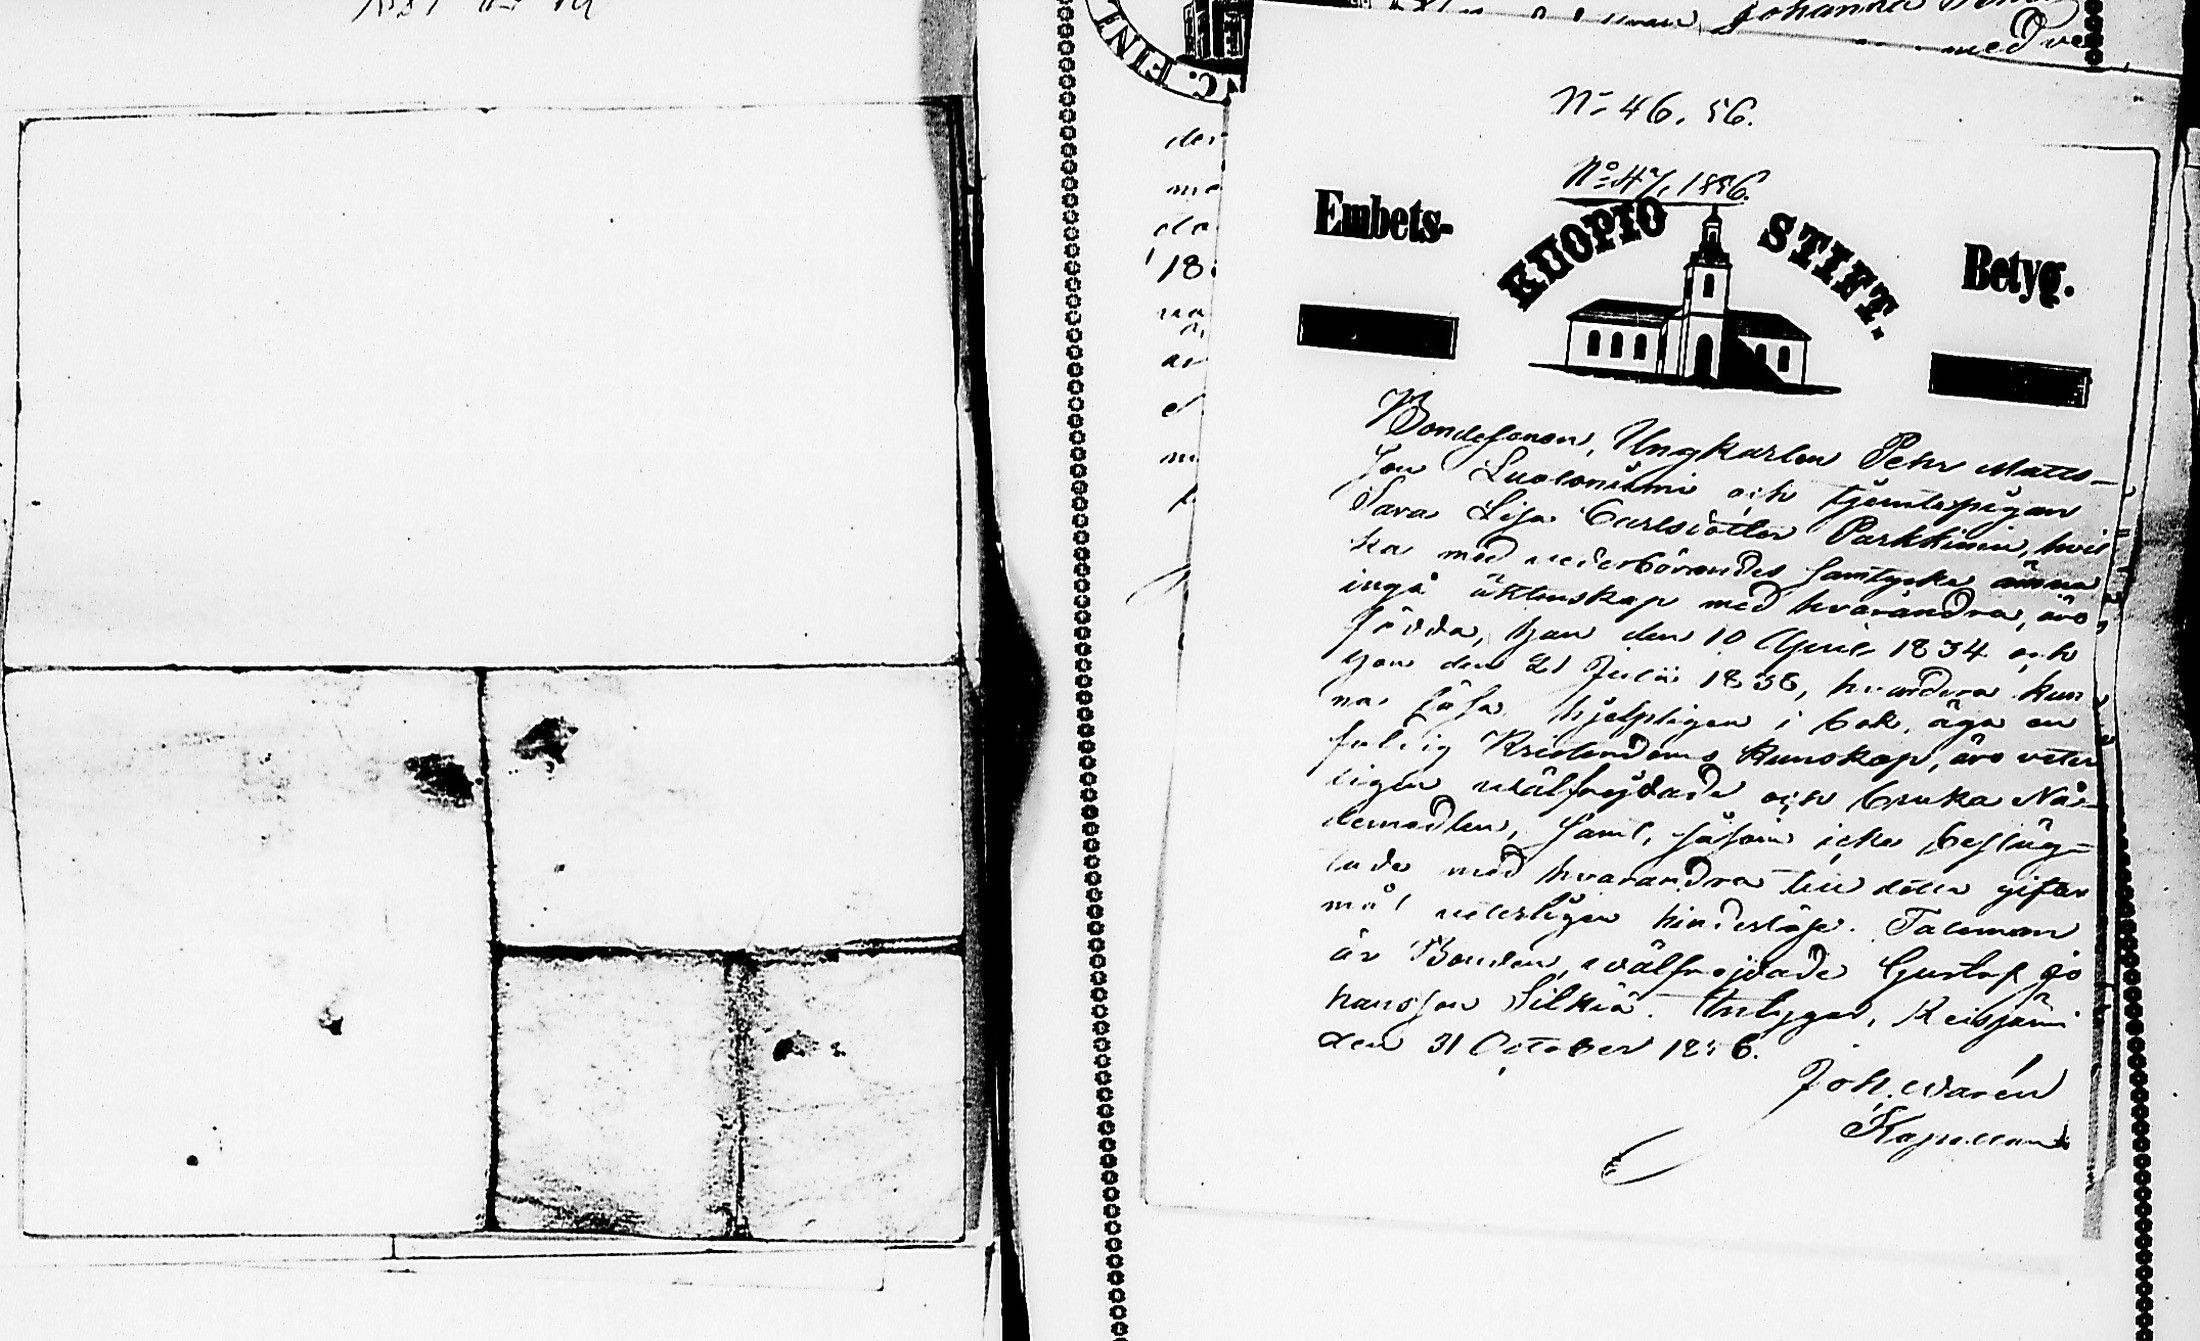 Johanna
med
C. FIN
N:o 46. 56.
N:o 47, 1856.
Embets- KUOPIO STIFT. Betyg.
der
me
18
Bondesonen, Ungkarlen Pehr Matts-
son Luoloniemi och tjenstepigan
Sara Lisa Carlsdotter Parkkinen, hvil
ka med vederbörandes samtycke ämna
ingå äktenskap med hvarandra, äro
födda, han den 10 April 1834 och
hon den 21 Julii 1838, hvardera kun
na läsa hjelpligen i bok, äga en
Kristendoms kunskap, äro veter
ligen välfrejdade och bruka Nå-
demedlen, samt, såsom icke beslägt-
tade med hvarandra till detta gifter
mål veterligen hinderlöse. Taleman
är Bonden, välfrejdade Gustaf Jo
hansson Silkiä. Intygar, Reisjärvi
den 31 October 1856.
Joh. Warén
Kapellan